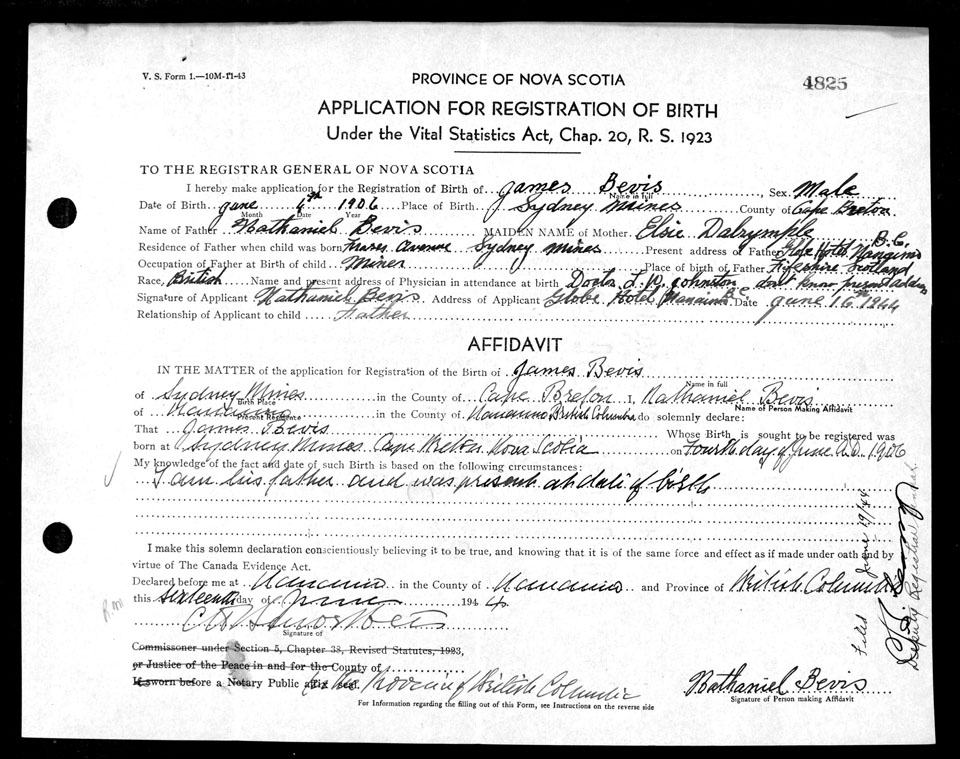 V. S. Form 1.—10M-11-43
PROVINCE OF NOVA SCOTIA
4825
APPLICATION FOR REGISTRATION OF BIRTH
Under the Vital Statistics Act, Chap. 20, R. S. 1923
TO THE REGISTRAR GENERAL OF NOVA SCOTIA
I hereby make application for the Registration of Birth of James Bevis, Sex Male
Name in full
Date of Birth June 1906 Place of Birth Sydney Mines County of Cape Breton
Month Date Year
Name of Father Nathaniel Bevis MAIDEN NAME of Mother Elsie Dalrymple
Residence of Father when child was born Fraser Avenue Sydney Mines Present address of Father Globe Hotel Nanaimo B.C.
Occupation of Father at Birth of child Miner Place of Birth of Father Fifeshire Scotland
Race, British Name and present address of Physician in attendance at birth Doctor L. W. Johnston don't know present address
Signature of Applicant Nathaniel Bevis Address of Applicant Globe Hotel Nanaimo B.C. Date June 16 1944
Relationship of Applicant to child Father
AFFIDAVIT
IN THE MATTER of the application for Registration of the Birth of James Bevis
Name in full
of Sydney Mines in the County of Cape Breton I, Nathaniel Bevis
Birth Place Name of Person Making Affidavit
of Nanaimo in the County of Nanaimo British Columbia do solemnly declare:
Present Residence
That James Bevis Whose Birth is sought to be registered was
born at Sydney Mines Cape Breton Nova Scotia on Fourth day of June A.D. 1906
My knowledge of the fact and date of such Birth is based on the following circumstances:
I am his father and was present at date of birth
I make this solemn declaration conscientiously believing it to be true, and knowing that it is of the same force and effect as if made under oath and by
virtue of The Canada Evidence Act.
Declared before me at Nanaimo in the County of Nanaimo and Province of British Columbia
this sixteenth day of June 1944
Signature of
Commissoner under Section 5, Chapter 38, Revised Statutes, 1923,
or Justice of the Peace in and for the County of
If sworn before a Notary Public affix seal. for the Province of British Columbia
For Information regarding the filling out of this Form, see Instructions on the reverse side
Nathaniel Bevis
Signature of Person making Affidavit
Filed June 19/44
Deputy Registrar General